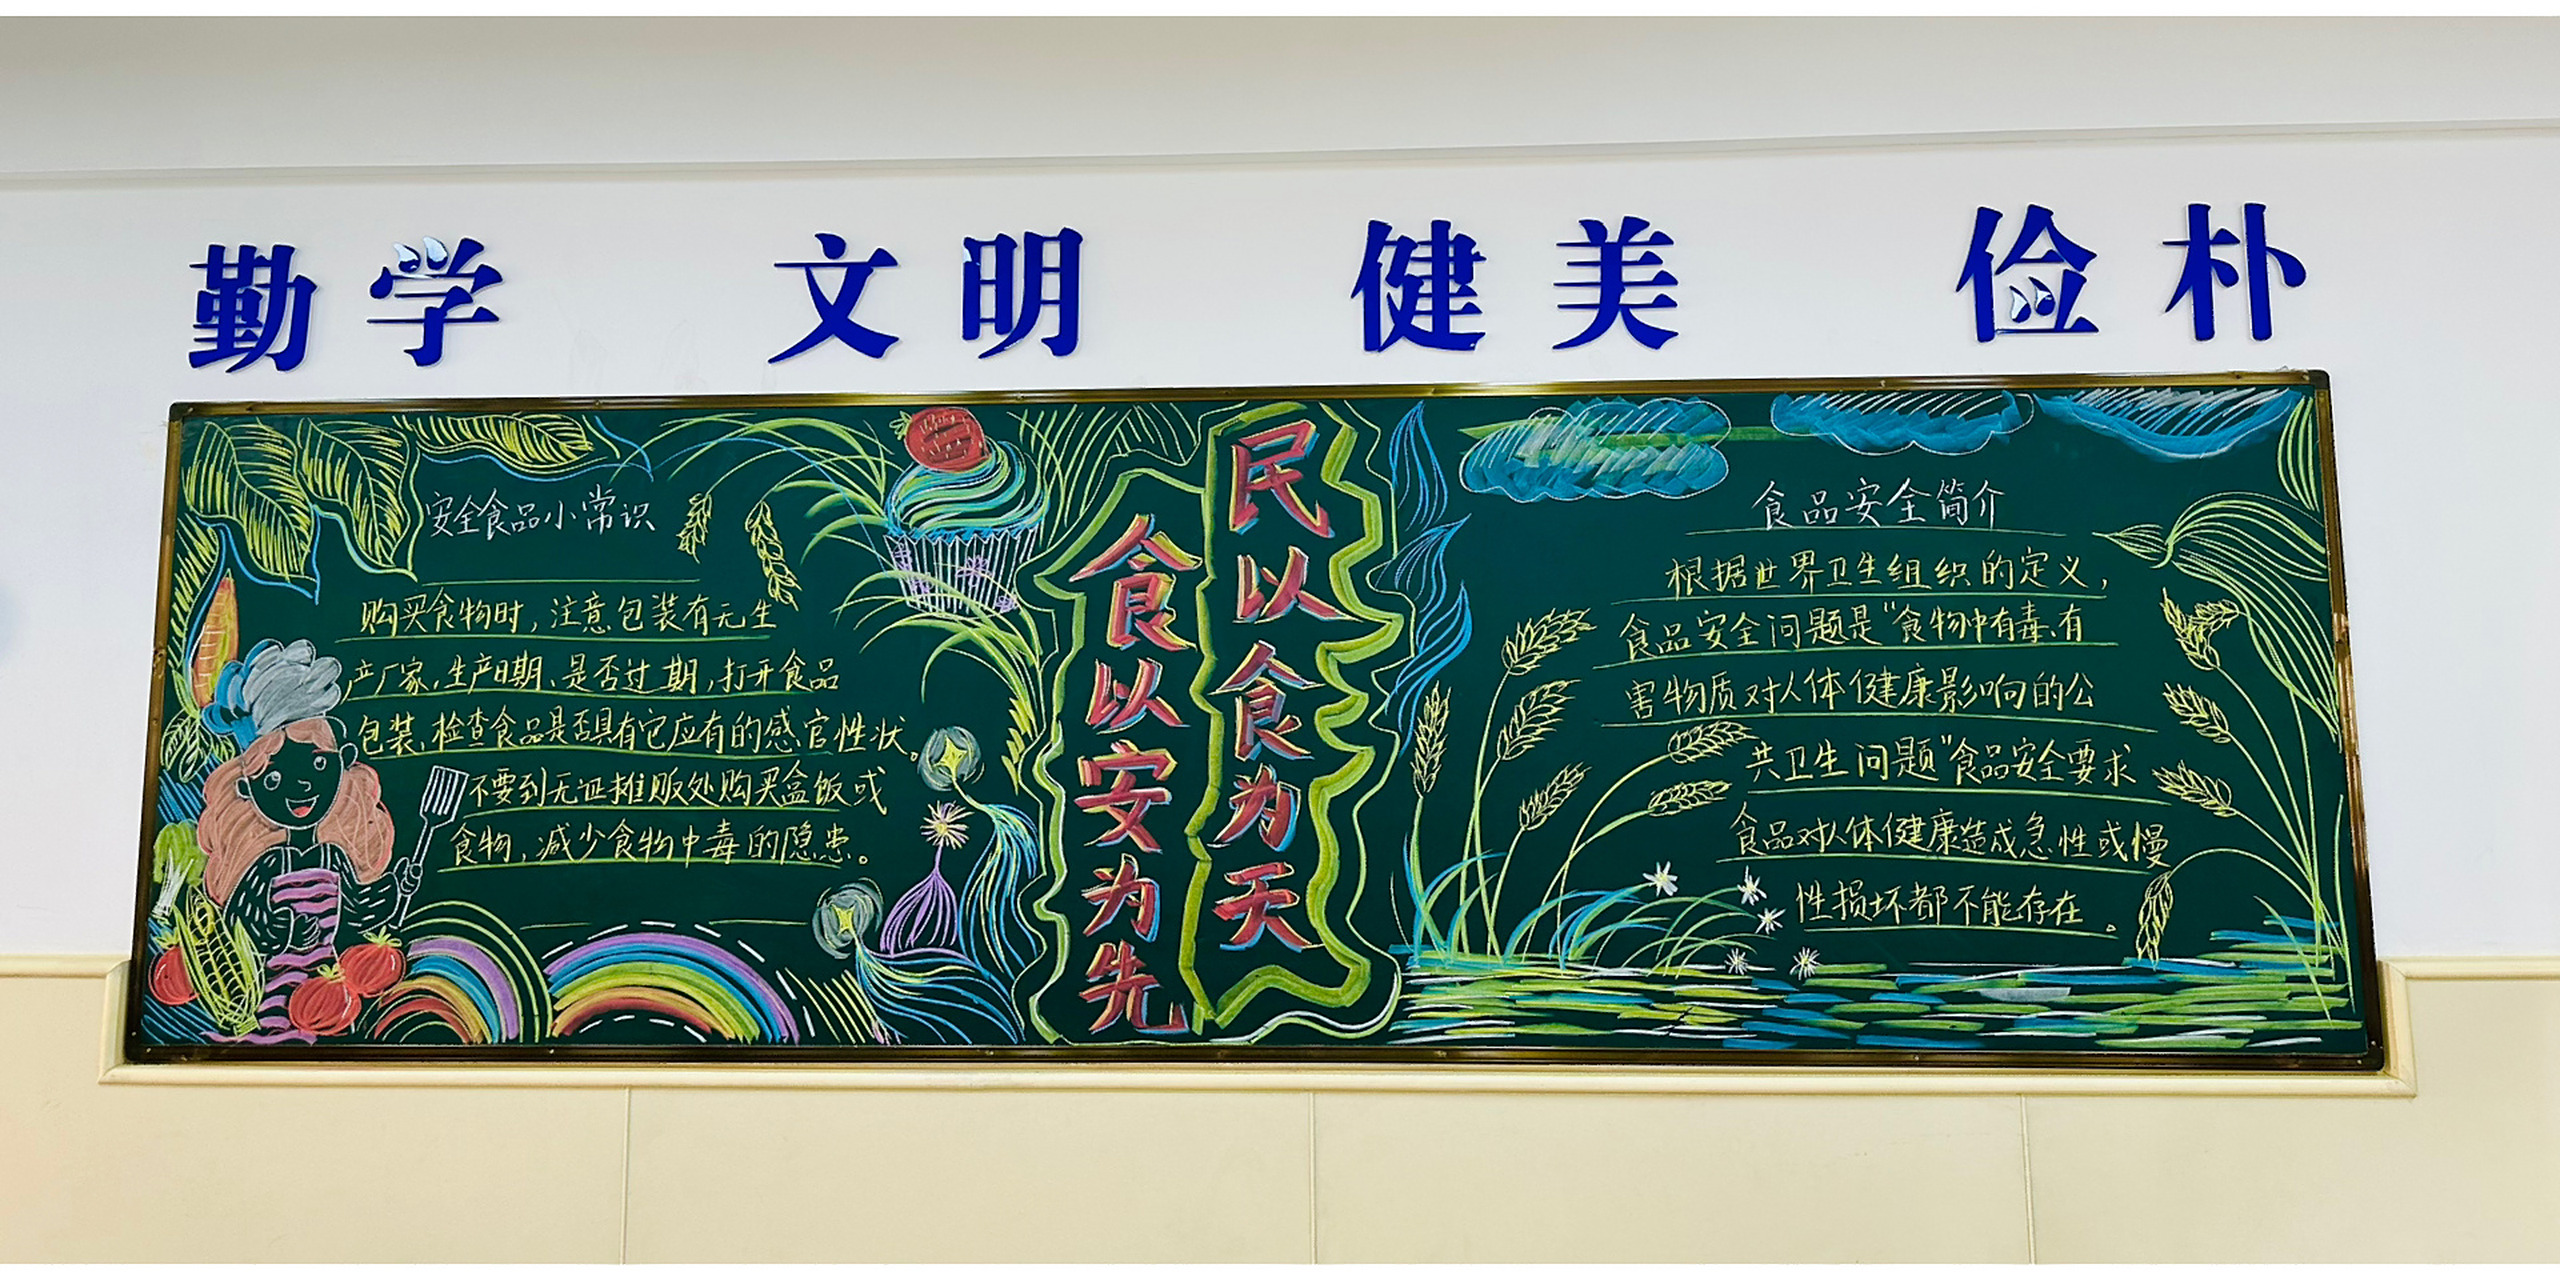 勤学 文明 健美 俭朴
安全食品小常识
购买食物时，注意包装有无生
产厂家，生产日期、是否过期，打开食品
包装、检查食品是否具有它应有的感官性状。
不要到无证摊贩处购买盒饭或
食物，减少食物中毒的隐患。
民以食为天
食以安为先
食品安全简介
根据世界卫生组织的定义，
食品安全问题是“食物中有毒、有
害物质对人体健康影响的公
共卫生问题”食品安全要求
食品对人体健康造成急性或慢
性损坏都不能存在。